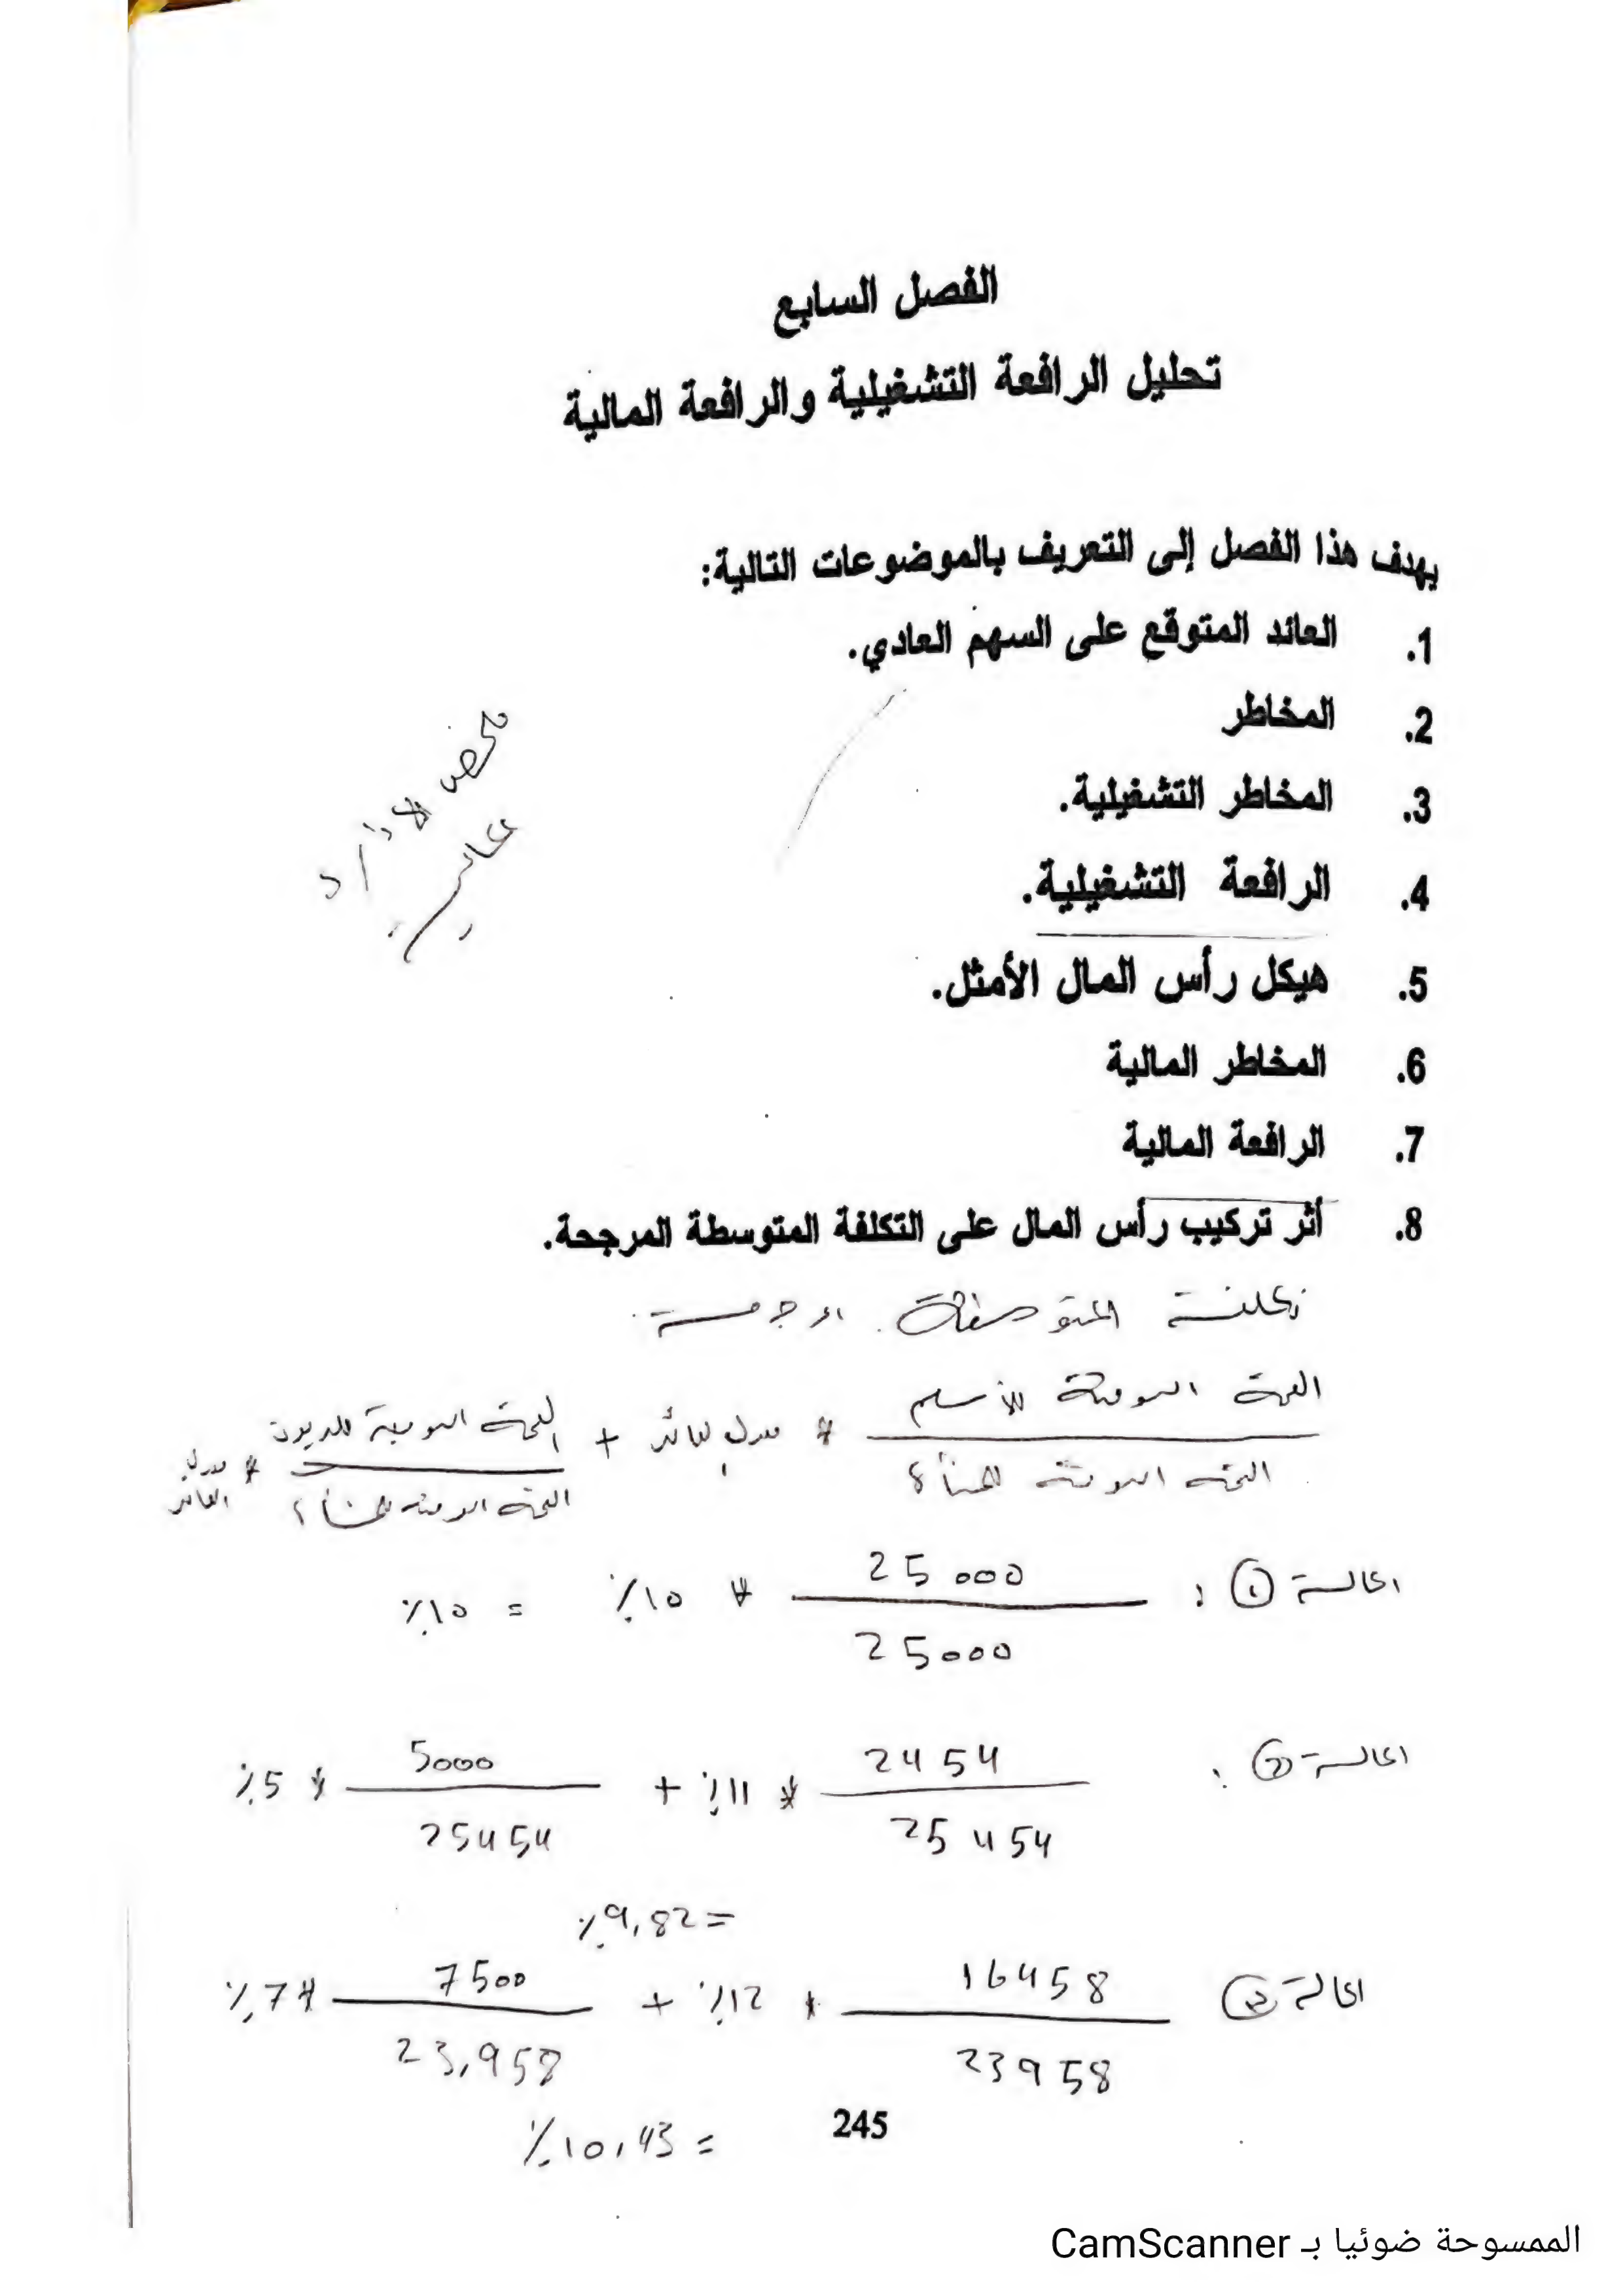 الفصل السابع
تحليل الرافعة التشغيلية والرافعة المالية
يهدف هذا الفصل إلى التعريف بالموضوعات التالية:
1. العائد المتوقع على السهم العادي.
2. المخاطر
3. المخاطر التشغيلية.
4. الرافعة التشغيلية.
5. هيكل رأس المال الأمثل.
6. المخاطر المالية
7. الرافعة المالية
8. أثر تركيب رأس المال على التكلفة المتوسطة المرجحة.
تكلفة
القيمة السوقية للأسهم * معدل العائد + القيمة السوقية للديون * معدل العائد
القيمة السوقية للمنشأة القيمة السوقية للمنشأة
الحالة ①: 25000 * 10٪ = 10٪
25000
الحالة ②: 2454 * 11٪ + 5000 * 5٪
25454 25454
= 9,82٪
الحالة ③ 16458 * 12٪ + 7500 * 7٪
23958 23,958
= 10,43٪
245
الممسوحة ضوئيا بـ CamScanner